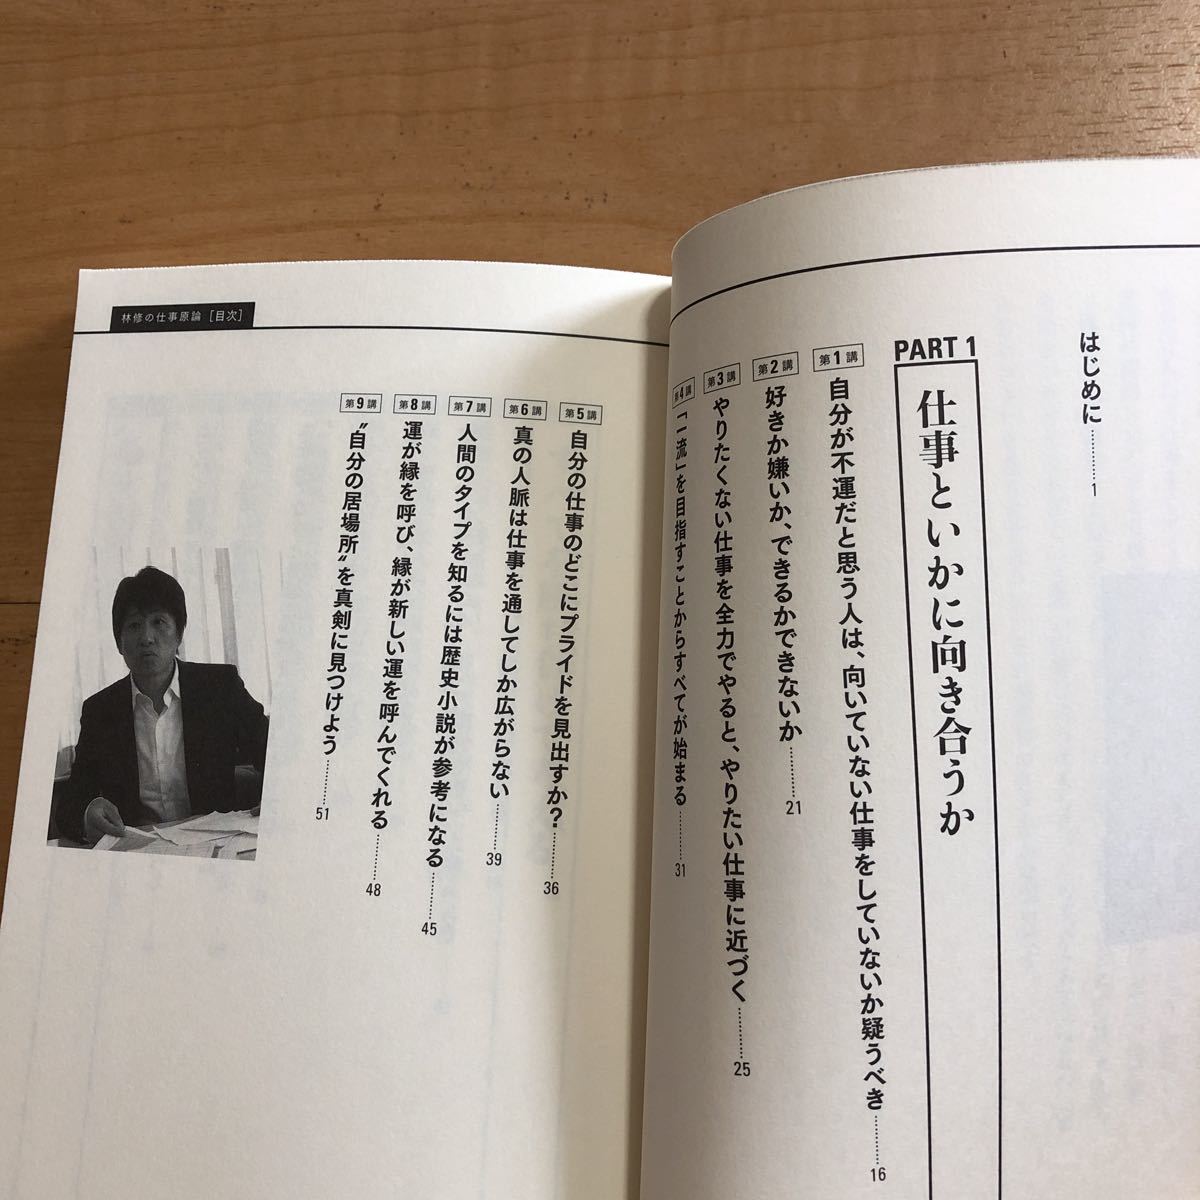 はじめに…………1
PART 1
仕事といかに向き合うか
第1講
自分が不運だと思う人は、向いていない仕事をしていないか疑うべき…………16
第2講
好きか嫌いか、できるかできないか…………21
第3講
やりたくない仕事を全力でやると、やりたい仕事に近づく…………25
第4講
「一流」を目指すことからすべてが始まる…………31
林修の仕事原論［目次］
第5講
自分の仕事のどこにプライドを見出すか？…………36
第6講
真の人脈は仕事を通してしか広がらない…………39
第7講
人間のタイプを知るには歴史小説が参考になる…………45
第8講
運が縁を呼び、縁が新しい運を呼んでくれる…………48
第9講
〝自分の居場所〟を真剣に見つけよう…………51